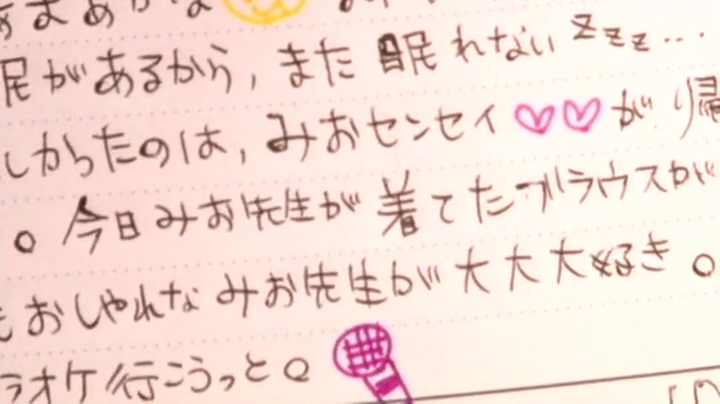 があるから, また 眠れない zzz...
しかったのは, みおセンセイ♡♡が り帰
。今日みお先生が 着てたブラウスが
おしゃれな みお先生が 大大大好き。
ラオケ行こうっと。